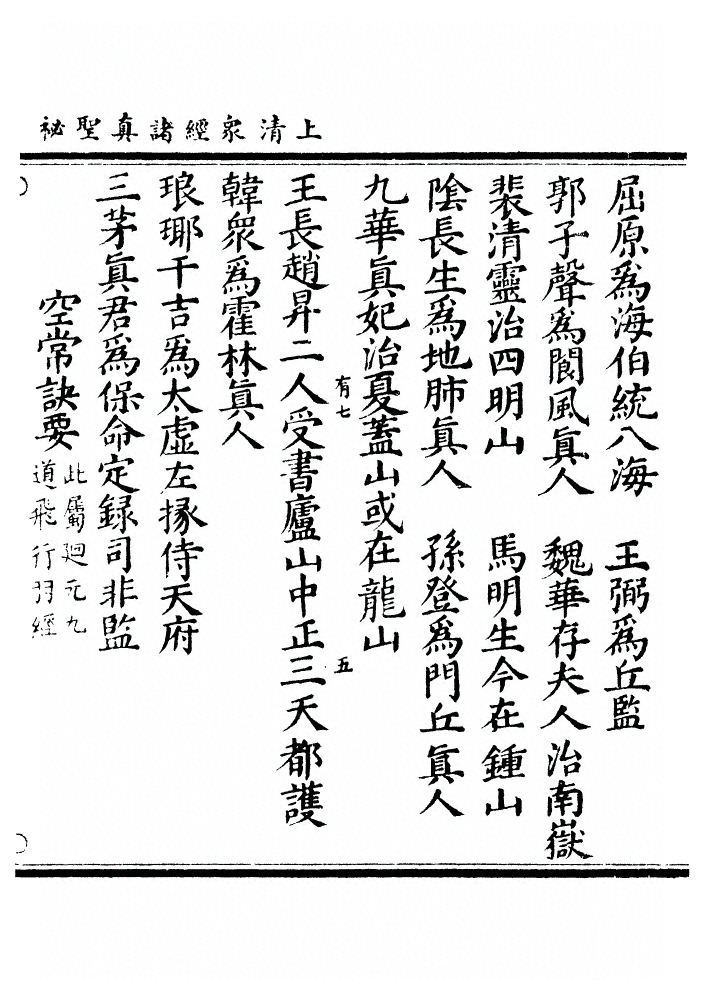 上清衆經諸真聖祕
屈原爲海伯統八海　王弼爲丘監
郭子聲爲閬風眞人　魏華存夫人治南嶽
裴清靈治四明山　馬明生今在鍾山
陰長生爲地肺眞人　孫登爲門丘眞人
九華眞妃治夏蓋山或在龍山
有七
王長趙昇二人受書廬山中正三天都護
五
韓衆爲霍林眞人
琅琊干吉爲太虛左掾侍天府
三茅眞君爲保命定錄司非監
空常訣要
此屬廻元九
道飛行羽經